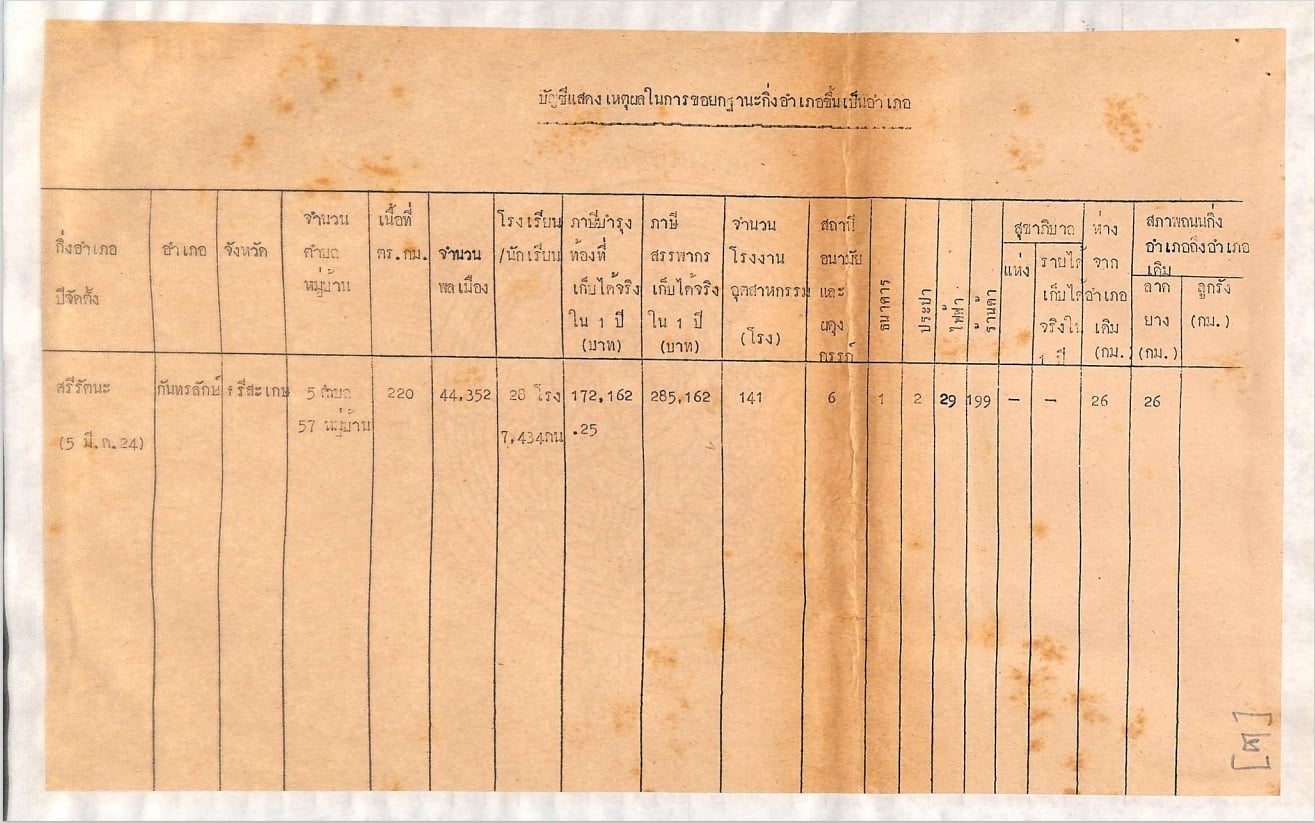 บัญชีแสดงเหตุผลในการขอยกฐานะกิ่งอำเภอขึ้นเป็นอำเภอ
กิ่งอำเภอ
ปีจัดตั้ง
อำเภอ
จังหวัด
จำนวน
ตำบล
หมู่บ้าน
เนื้อที่
ตร.กม.
จำนวน
พลเมือง
โรงเรียน
/นักเรียน
ภาษีบำรุง
ท้องที่
เก็บได้จริง
ใน 1 ปี
(บาท)
ภาษี
สรรพากร
เก็บได้จริง
ใน 1 ปี
(บาท)
จำนวน
โรงงาน
อุตสาหกรรม
(โรง)
สถานี
อนามัย
และ
ผดุง
ครรภ์
ธนาคาร
ประปา
ไฟฟ้า
ร้านค้า
สุขาภิบาล
แห่ง
รายได้
เก็บได้
จริงใน
1 ปี
ห่าง
จาก
อำเภอ
เดิม
(กม.)
สภาพถนนกิ่ง
อำเภอถึงอำเภอ
เดิม
ลาด
ยาง
(กม.)
ลูกรัง
(กม.)
ศรีรัตนะ
(5 มี.ค.24)
กันทรลักษ์
ศรีสะเกษ
5 ตำบล
57 หมู่บ้าน
220
44,352
28 โรง
7,434คน
172,162
.25
285,162
141
6
1
2
29
199
–
–
26
26